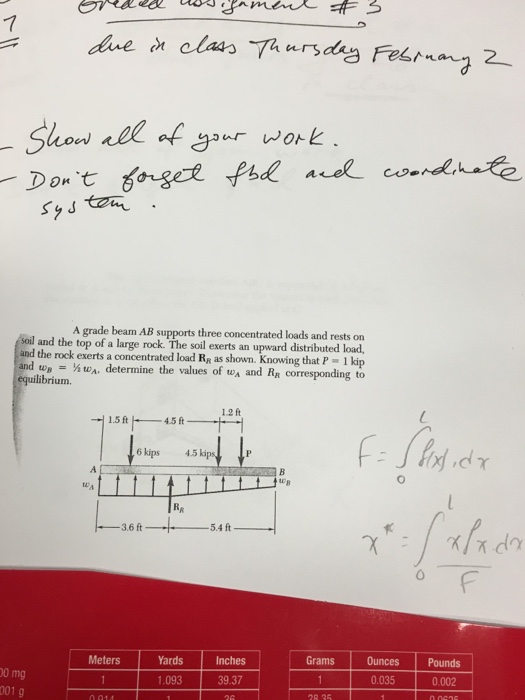 Graded assignment # 3
due in class Thursday February 2
- Show all of your work.
- Don't forget fbd and coordinate
system.
A grade beam AB supports three concentrated loads and rests on
soil and the top of a large rock. The soil exerts an upward distributed load,
and the rock exerts a concentrated load R_R as shown. Knowing that P = 1 kip
and w_B = ½ w_A, determine the values of w_A and R_R corresponding to
equilibrium.
1.5 ft 4.5 ft 1.2 ft
6 kips 4.5 kips P
A B
w_A w_B
R_R
3.6 ft 5.4 ft
F = ∫₀ᴸ f(x).dx
x* = ∫₀ᴸ x f x dx
F
Meters Yards Inches Grams Ounces Pounds
00 mg 1 1.093 39.37 1 0.035 0.002
001 g 0.914 1 36 28.35 1 0.0625